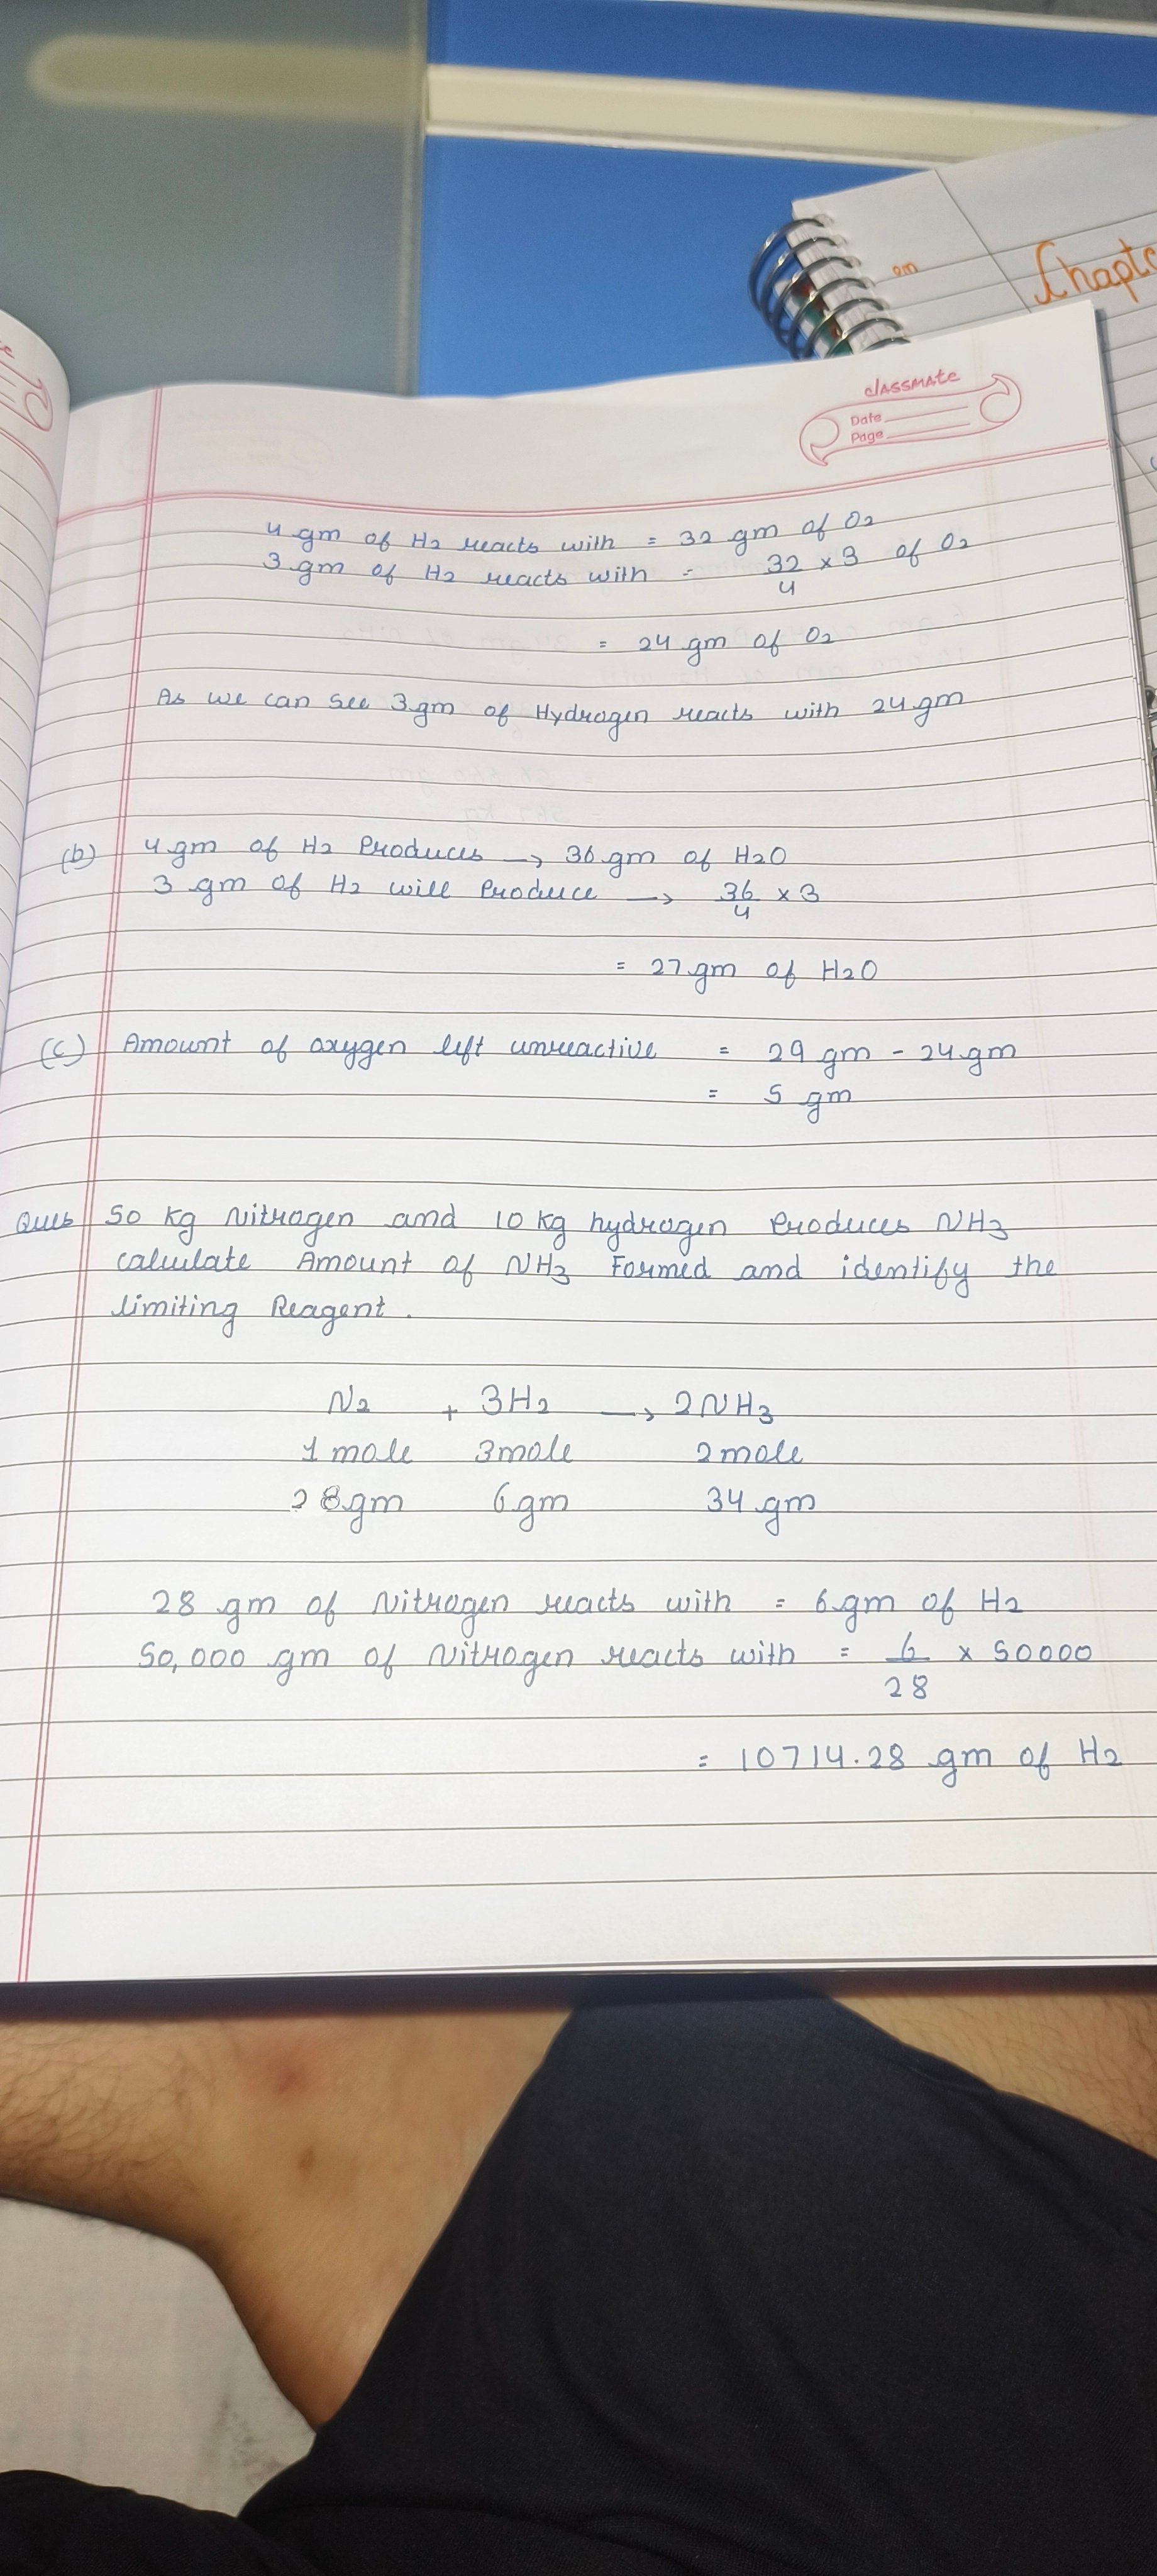 em
Chapte
classmate
Date
Page
4 gm of H2 reacts with = 32 gm of O2
3 gm of H2 reacts with = 32/4 x 3 of O2
= 24 gm of O2
As we can see 3 gm of Hydrogen reacts with 24 gm
(b) 4 gm of H2 Produces → 36 gm of H2O
3 gm of H2 will Produce → 36/4 x 3
= 27 gm of H2O
(c) Amount of oxygen left unreactive = 29 gm - 24 gm
= 5 gm
Ques 50 kg Nitrogen and 10 kg hydrogen Produces NH3
calculate Amount of NH3 Formed and identify the
limiting Reagent.
N2 + 3H2 → 2NH3
1 mole 3 mole 2 mole
28 gm 6 gm 34 gm
28 gm of Nitrogen reacts with = 6 gm of H2
50,000 gm of Nitrogen reacts with = 6/28 x 50000
= 10714.28 gm of H2